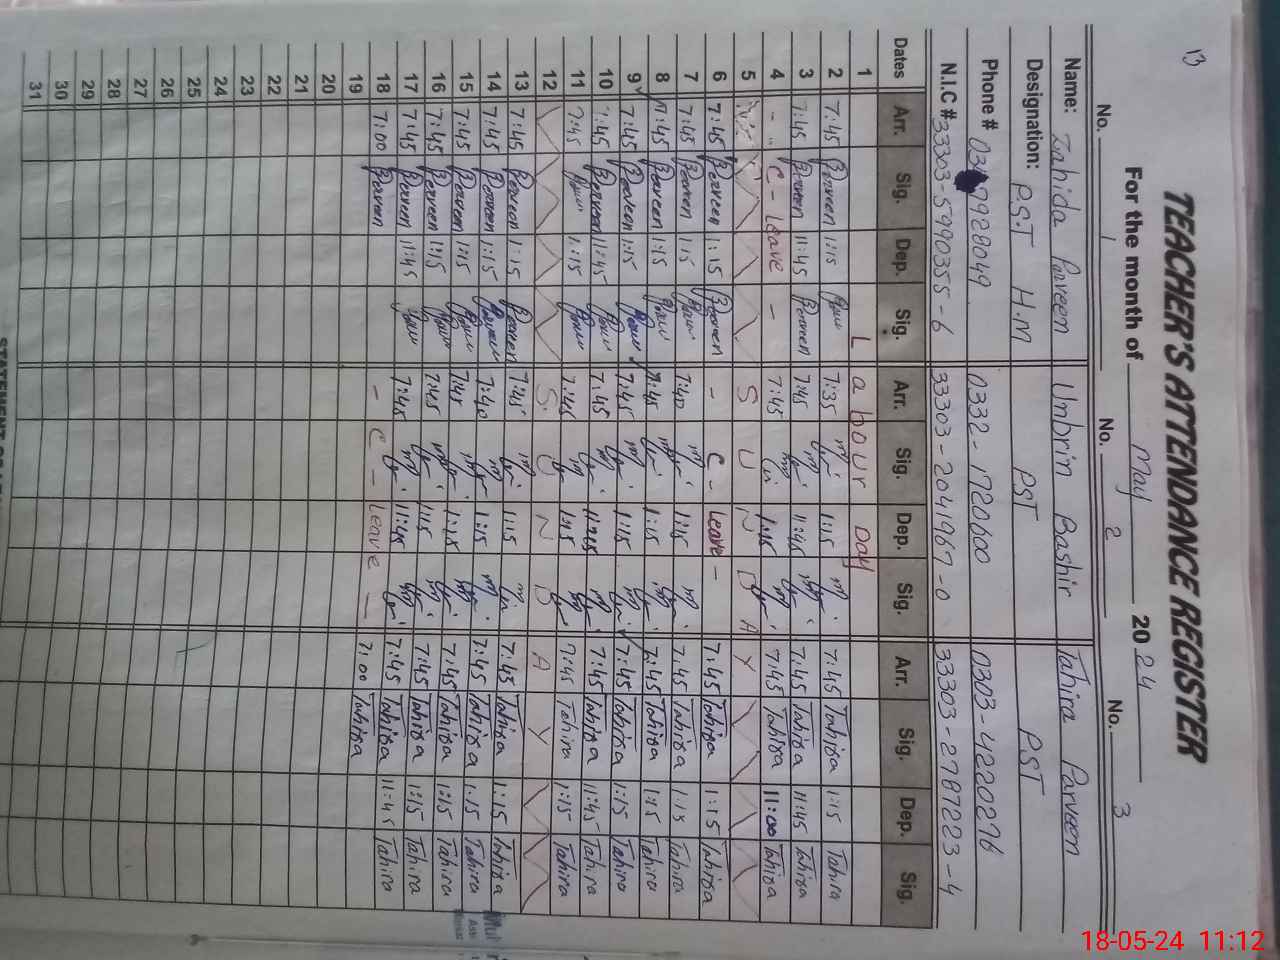 13
TEACHER'S ATTENDANCE REGISTER
For the month of May 2024
No. 1 No. 2 No. 3
Name: Zahida Parveen Umbrin Bashir Tahira Parveen
Designation: P.S.T H.M PST PST
Phone # 0332-1720600 0303-4220276
N.I.C # 33303-5990355-6 33303-2041967-0 33303-2787223-4
Dates Arr. Sig. Dep. Sig. Arr. Sig. Dep. Sig. Arr. Sig. Dep. Sig.
1 Labour Day
2 7:45 Parveen 1:15 7:35 1:15 7:45 Tahira 1:15 Tahira
3 7:45 Parveen 11:45 Parveen 7:45 11:45 7:45 Tahira 11:45 Tahira
4 - C - Leave - 7:45 7:45 Tahira 11:00 Tahira
5 SUNDAY
6 7:45 Parveen 1:15 Parveen - C - Leave - 7:45 Tahira 1:15 Tahira
7 7:45 Parveen 1:15 7:40 1:15 7:45 Tahira 1:15 Tahira
8 7:45 Parveen 1:15 7:45 1:15 7:45 Tahira 1:15 Tahira
9 7:45 Parveen 1:15 7:45 1:15 7:45 Tahira 1:15 Tahira
10 7:45 Parveen 11:45 7:45 7:45 Tahira 11:45 Tahira
11 7:45 1:15 7:45 1:15 7:45 Tahira 1:15 Tahira
12 SUNDAY
13 7:45 Parveen 1:15 Parveen 7:45 1:15 7:45 Tahira 1:15 Tahira
14 7:45 Parveen 1:15 Parveen 7:40 1:15 7:45 Tahira 1:15 Tahira
15 7:45 Parveen 1:15 7:45 1:15 7:45 Tahira 1:15 Tahira
16 7:45 Parveen 1:15 7:45 1:15 7:45 Tahira 1:15 Tahira
17 7:45 Parveen 11:45 7:45 11:45 7:45 Tahira 11:45 Tahira
18 7:00 Parveen - C - Leave - 7:00 Tahira
19
20
21
22
23
24
25
26
27
28
29
30
31
18-05-24 11:12